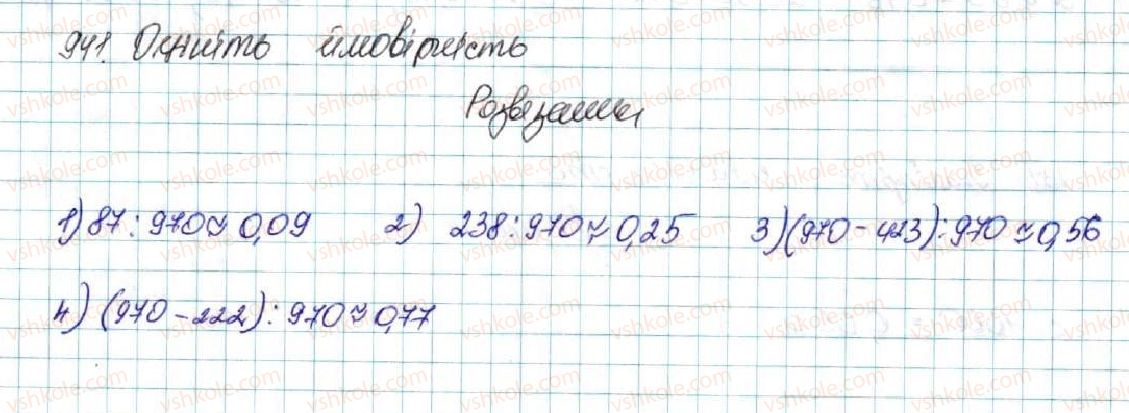 941. Оцініть ймовірність
Розв'язання
1) 87 : 970 ≈ 0,09 2) 238 : 970 ≈ 0,25 3) (970 - 423) : 970 ≈ 0,56
4) (970 - 222) : 970 ≈ 0,77